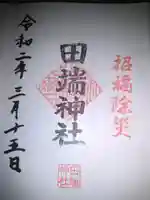 招福除災
田端神社
令和二年三月十五日